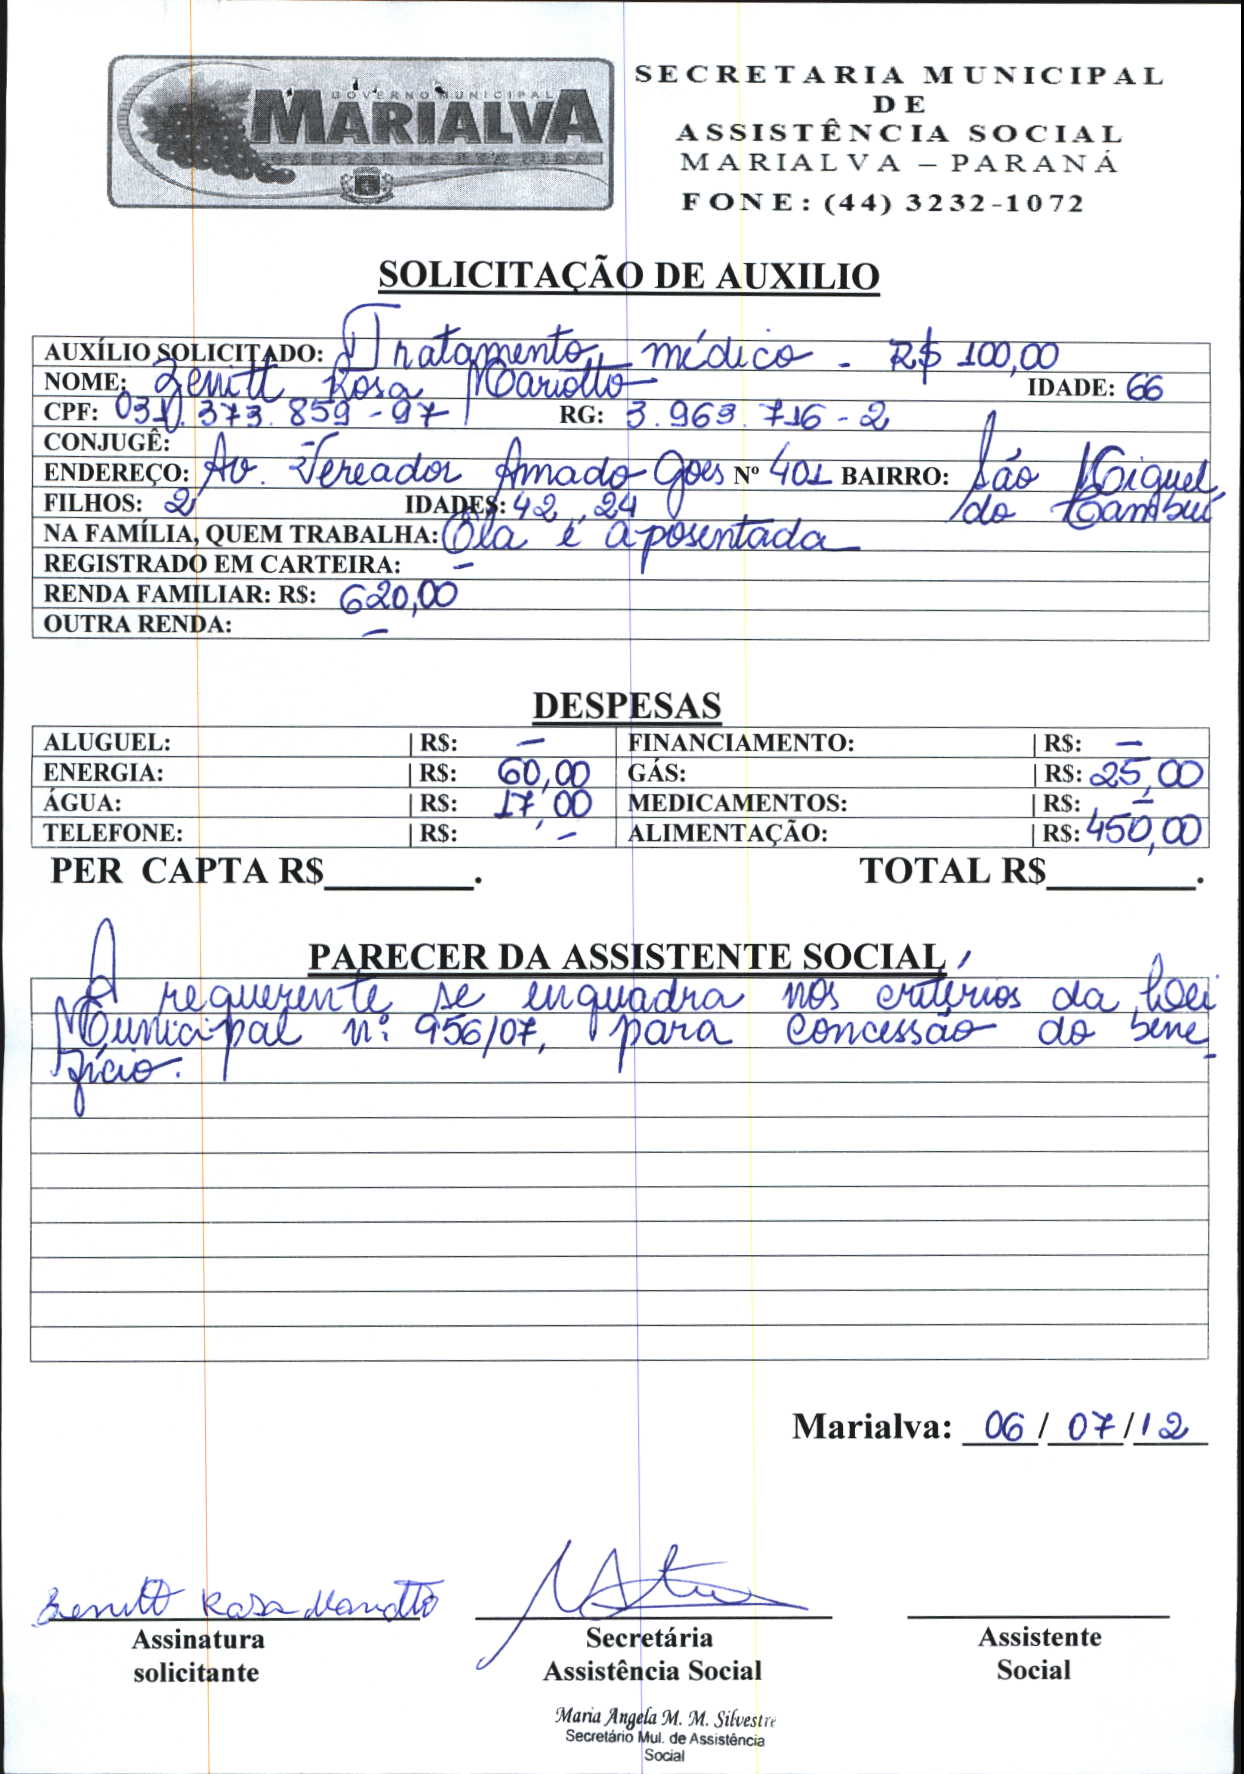 GOVERNO MUNICIPAL
MARIALVA
CAPITAL DA UVA FINA
SECRETARIA MUNICIPAL
DE
ASSISTÊNCIA SOCIAL
MARIALVA – PARANÁ
FONE: (44) 3232-1072
SOLICITAÇÃO DE AUXILIO
AUXÍLIO SOLICITADO: Tratamento médico - R$ 100,00
NOME: Zenitt Rosa Mariotto IDADE: 66
CPF: 031.373.859-97 RG: 3.963.716-2
CONJUGÊ: -
ENDEREÇO: Av. Vereador Amado Goes Nº 401 BAIRRO: São Miguel
do Cambuí
FILHOS: 2 IDADES: 42, 24
NA FAMÍLIA, QUEM TRABALHA: Ela é aposentada
REGISTRADO EM CARTEIRA: -
RENDA FAMILIAR: R$: 620,00
OUTRA RENDA: -
DESPESAS
ALUGUEL: | R$: - FINANCIAMENTO: | R$: -
ENERGIA: | R$: 60,00 GÁS: | R$: 25,00
ÁGUA: | R$: 17,00 MEDICAMENTOS: | R$: -
TELEFONE: | R$: - ALIMENTAÇÃO: | R$: 450,00
PER CAPTA R$________. TOTAL R$________.
PARECER DA ASSISTENTE SOCIAL
A requerente se enquadra nos critérios da Lei
Municipal nº 956/07, para concessão do bene-
fício.
Marialva: 06/07/12
Zenitt Rosa Mariotto
Assinatura Secretária Assistente
solicitante Assistência Social Social
Maria Angela M. M. Silvestre
Secretário Mul. de Assistência
Social